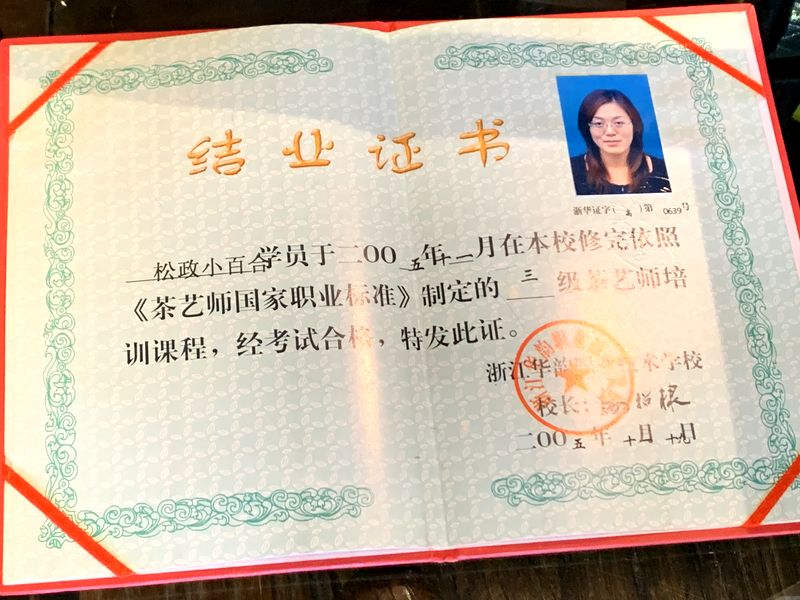 结业证书
浙华证字( 高 )第 0639号
松政小百合学员于二00五年十一月在本校修完依照
《茶艺师国家职业标准》制定的 三 级茶艺师培
训课程，经考试合格，特发此证。
浙江华韵 术学校
校长：
二00五年十月十九日